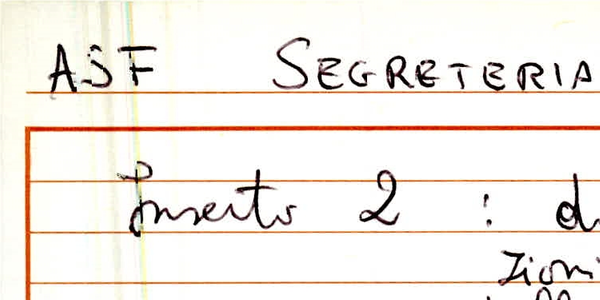 ASF SEGRETERIA
Inserto 2 : d
zioni